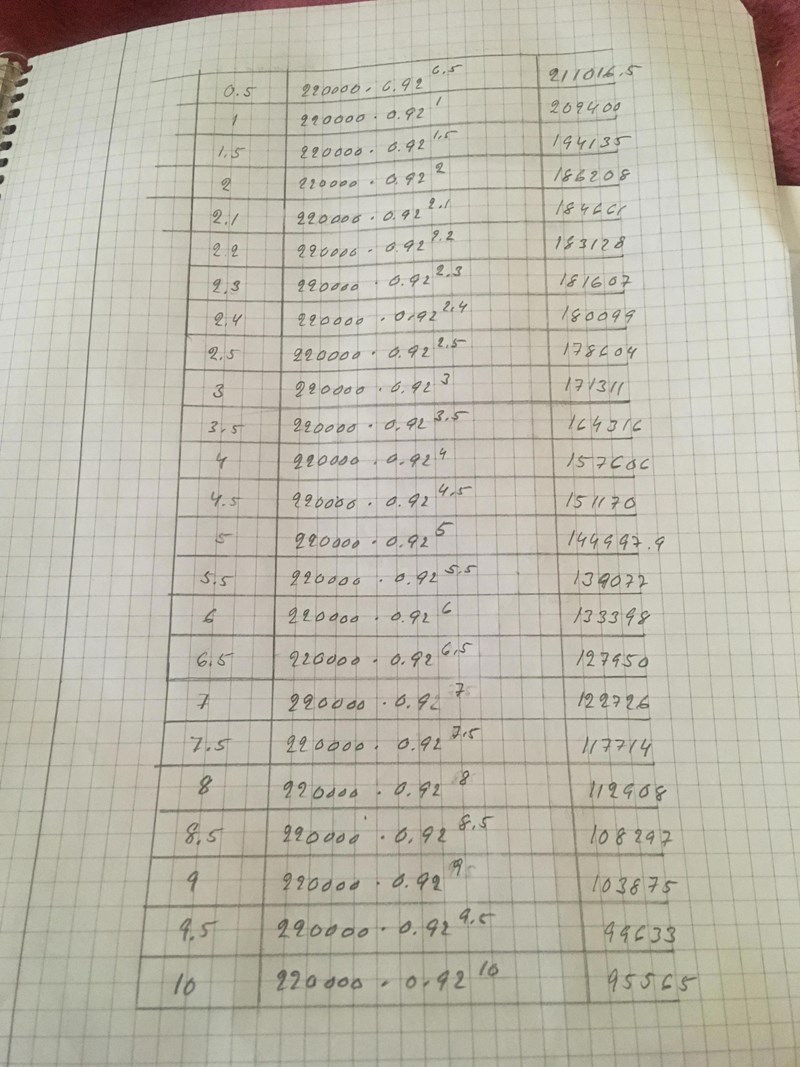 0.5 220000 · 0.92^0.5 211016.5
1 220000 · 0.92^1 209400
1.5 220000 · 0.92^1.5 194135
2 220000 · 0.92^2 186208
2.1 220000 · 0.92^2.1 184661
2.2 220000 · 0.92^2.2 183128
2.3 220000 · 0.92^2.3 181607
2.4 220000 · 0.92^2.4 180099
2.5 220000 · 0.92^2.5 178604
3 220000 · 0.92^3 171311
3.5 220000 · 0.92^3.5 164316
4 220000 · 0.92^4 157606
4.5 220000 · 0.92^4.5 151170
5 220000 · 0.92^5 144997.9
5.5 220000 · 0.92^5.5 139077
6 220000 · 0.92^6 133398
6.5 220000 · 0.92^6.5 127950
7 220000 · 0.92^7 122726
7.5 220000 · 0.92^7.5 117714
8 220000 · 0.92^8 112908
8.5 220000 · 0.92^8.5 108297
9 220000 · 0.92^9 103875
9.5 220000 · 0.92^9.5 99633
10 220000 · 0.92^10 95565